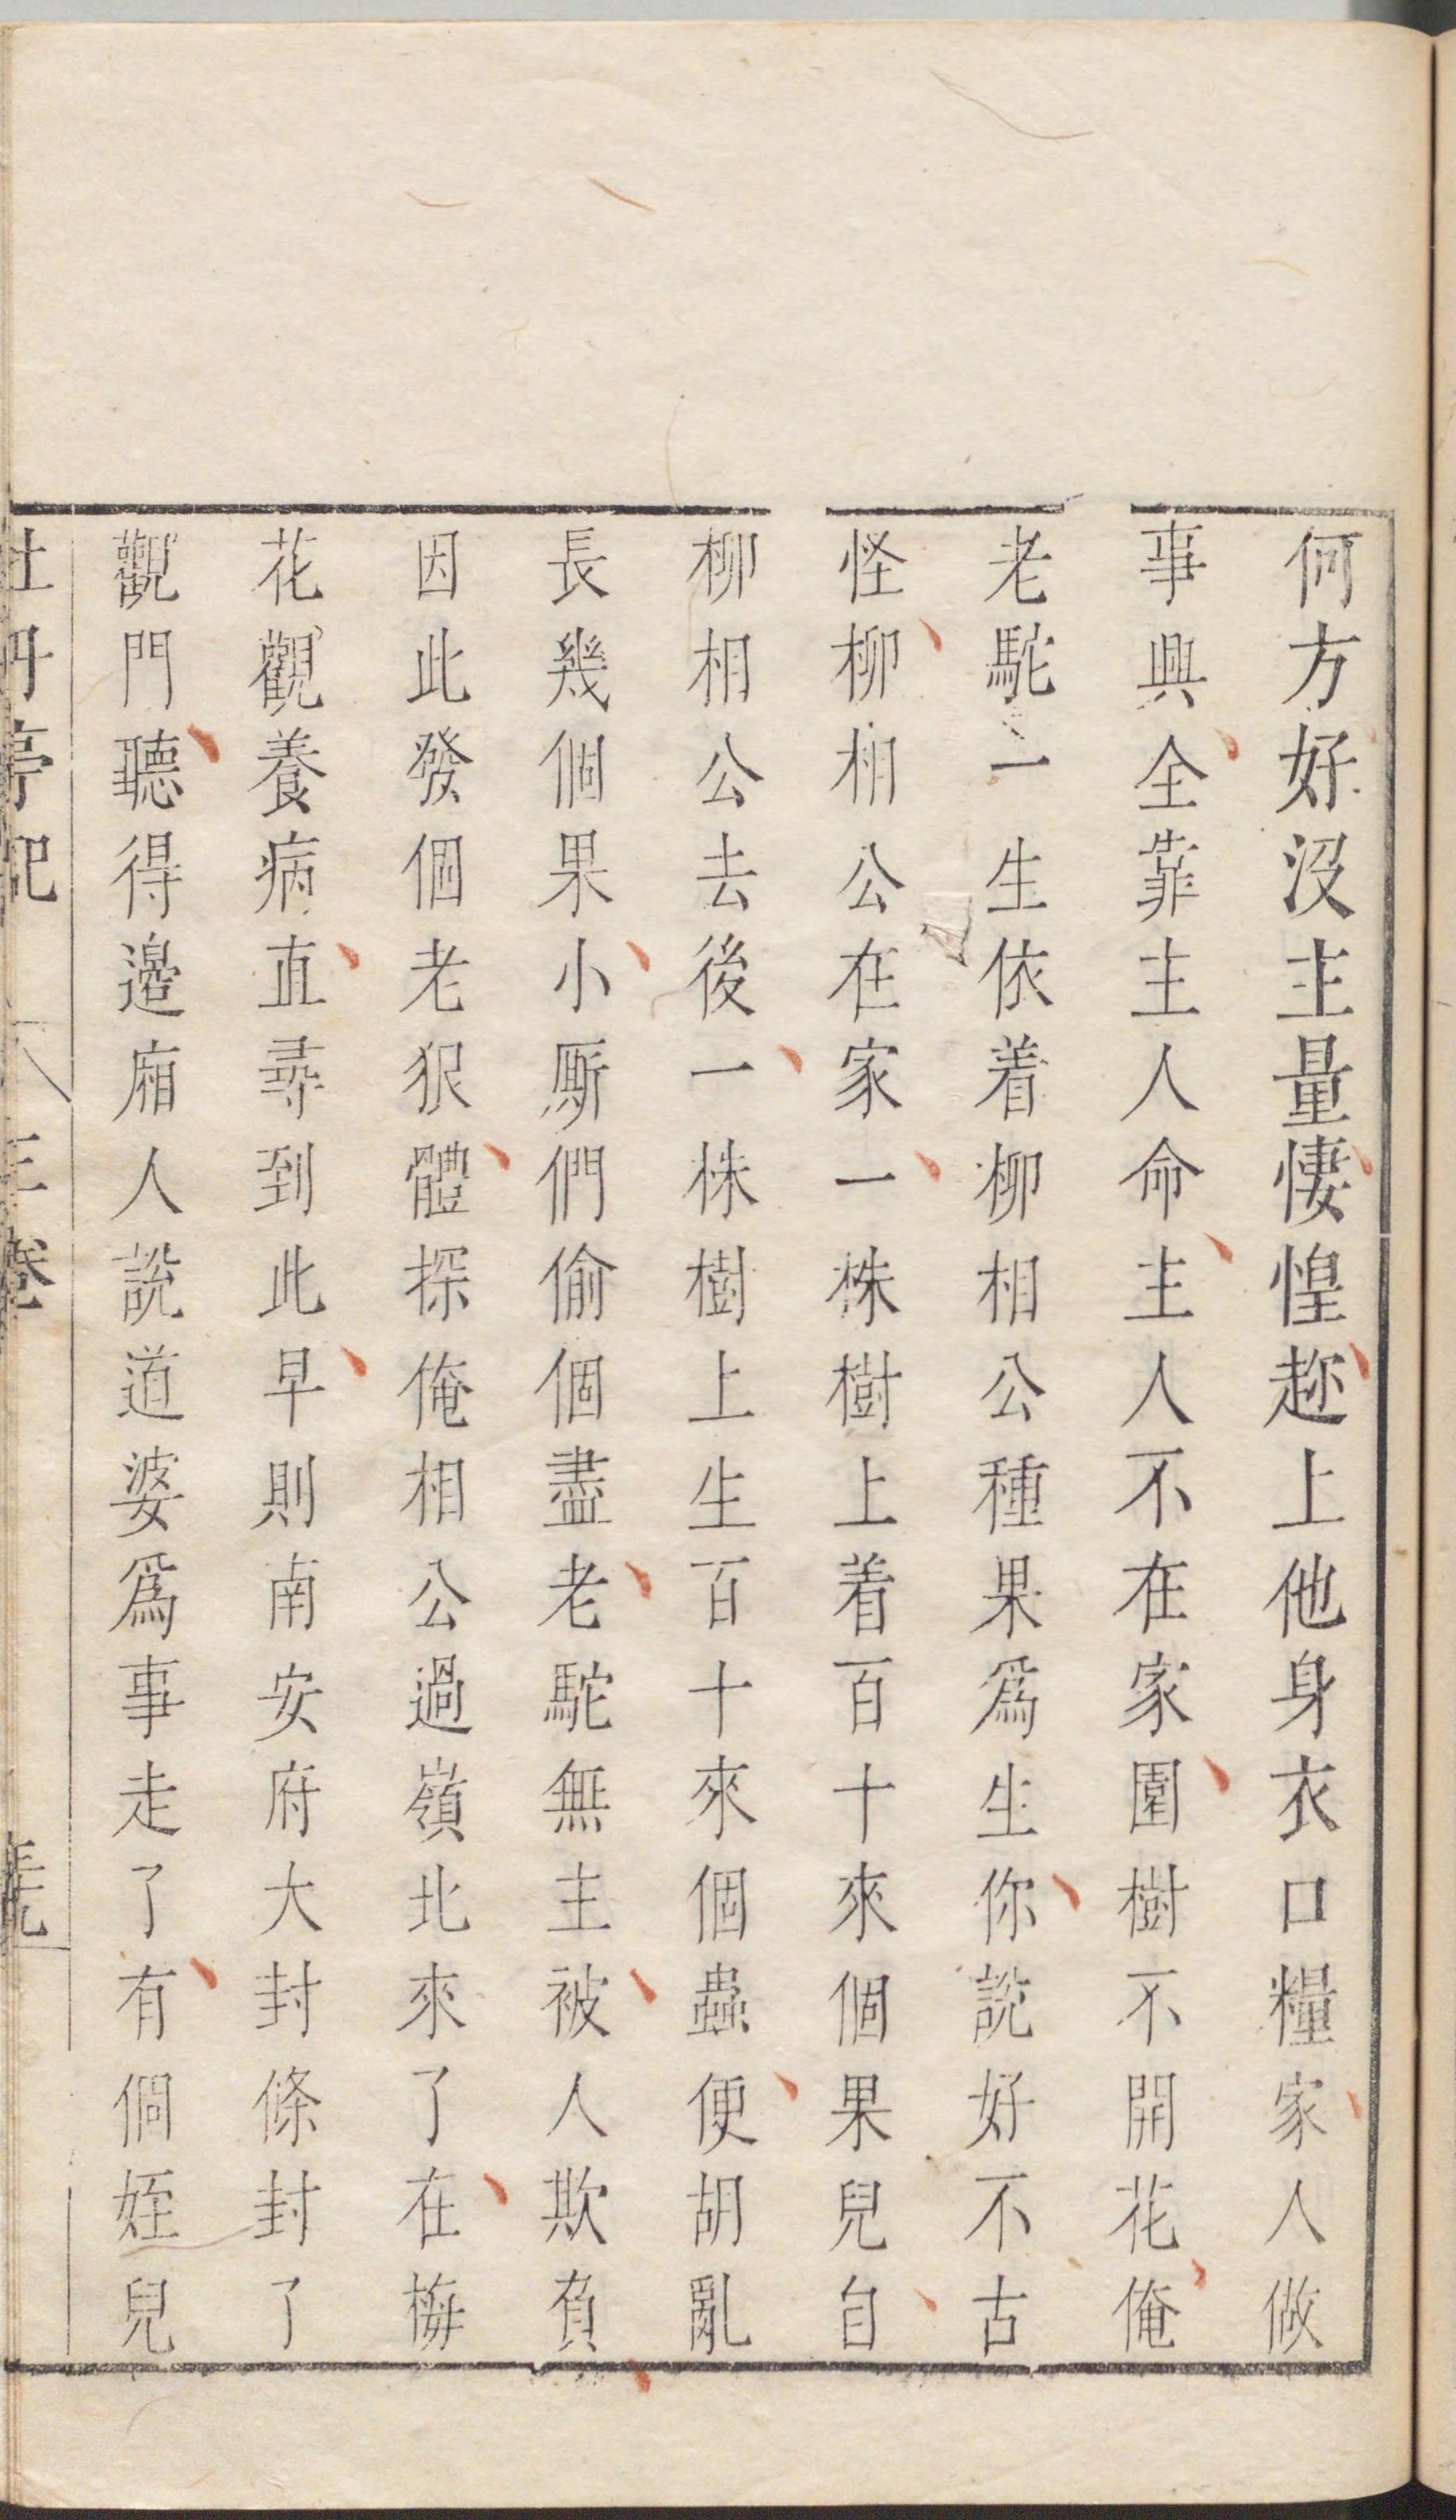 何方好沒主量悽惶趂上他身衣口糧家人做
事興全靠主人命主人不在家園樹不開花俺
老駝一生依着柳相公種果爲生你說好不古
怪柳相公在家一株樹上着百十來個果兒自
柳相公去後一株樹上生百十來個蟲便胡亂
長幾個果小厮們偷個盡老駝無主被人欺負
因此發個老狠體探俺相公過嶺北來了在梅
花觀養病直尋到此早則南安府大封條封了
觀門聽得邉廂人說道婆爲事走了有個姪兒
牡丹亭記 三卷